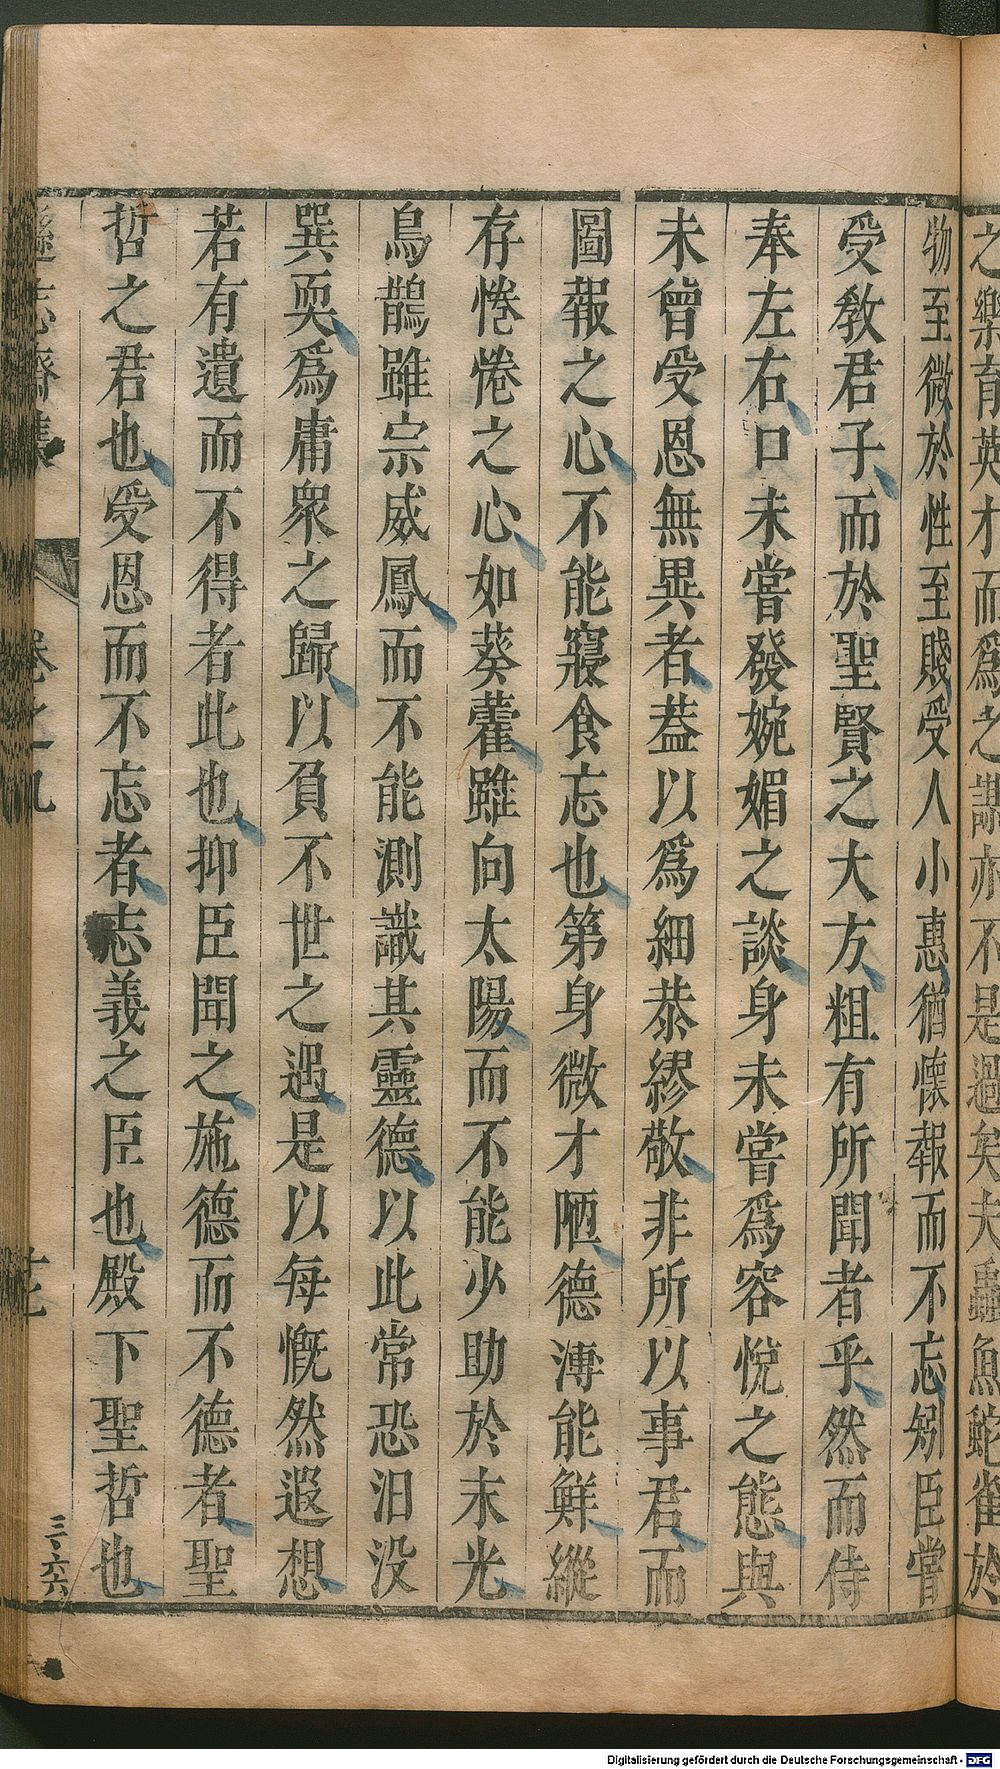 之樂育英才而爲之謀亦不是過矣夫蟲魚蛇雀於
物至微於性至賤受人小惠猶懷報而不忘矧臣嘗
受敎君子而於聖賢之大方粗有所聞者乎然而侍
奉左右口未嘗發婉媚之談身未嘗爲容悅之態與
未曾受恩無異者葢以爲細恭繆敬非所以事君而
圖報之心不能寢食忘也第身微才陋德溥能鮮縱
存惓惓之心如葵藿雖向太陽而不能少助於末光
鳥鵲雖宗威鳳而不能測識其靈德以此常恐汨没
巽耎爲庸衆之歸以負不世之遇是以每慨然遐想
若有遺而不得者此也抑臣聞之施德而不德者聖
哲之君也受恩而不忘者志義之臣也殿下聖哲也
遜志齋集 卷之九
三、六六
Digitalisierung gefördert durch die Deutsche Forschungsgemeinschaft - DFG